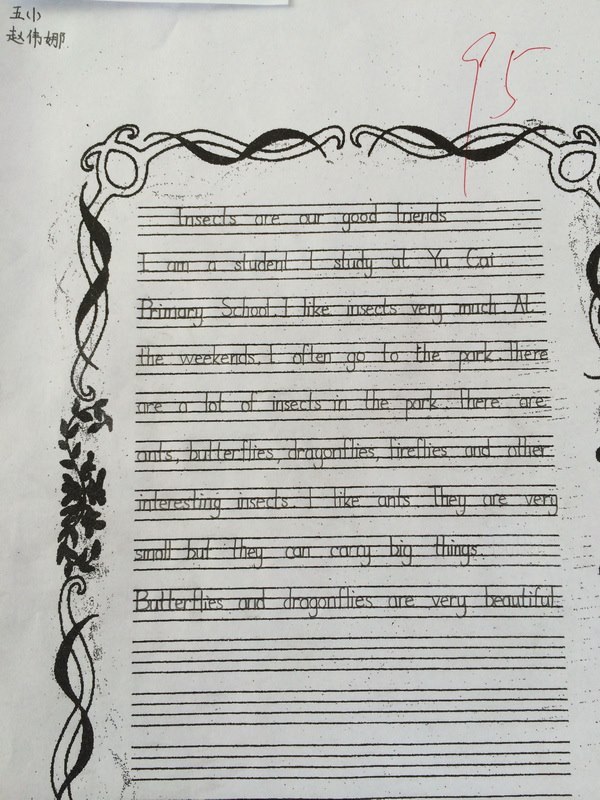 五小
赵伟娜
95
Insects are our good friends
I am a student. I study at Yu Cai
Primary School. I like insects very much. At
the weekends, I often go to the park. There
are a lot of insects in the park. There are
ants, butterflies, dragonflies, fireflies and other
interesting insects. I like ants. They are very
small but they can carry big things.
Butterflies and dragonflies are very beautiful.